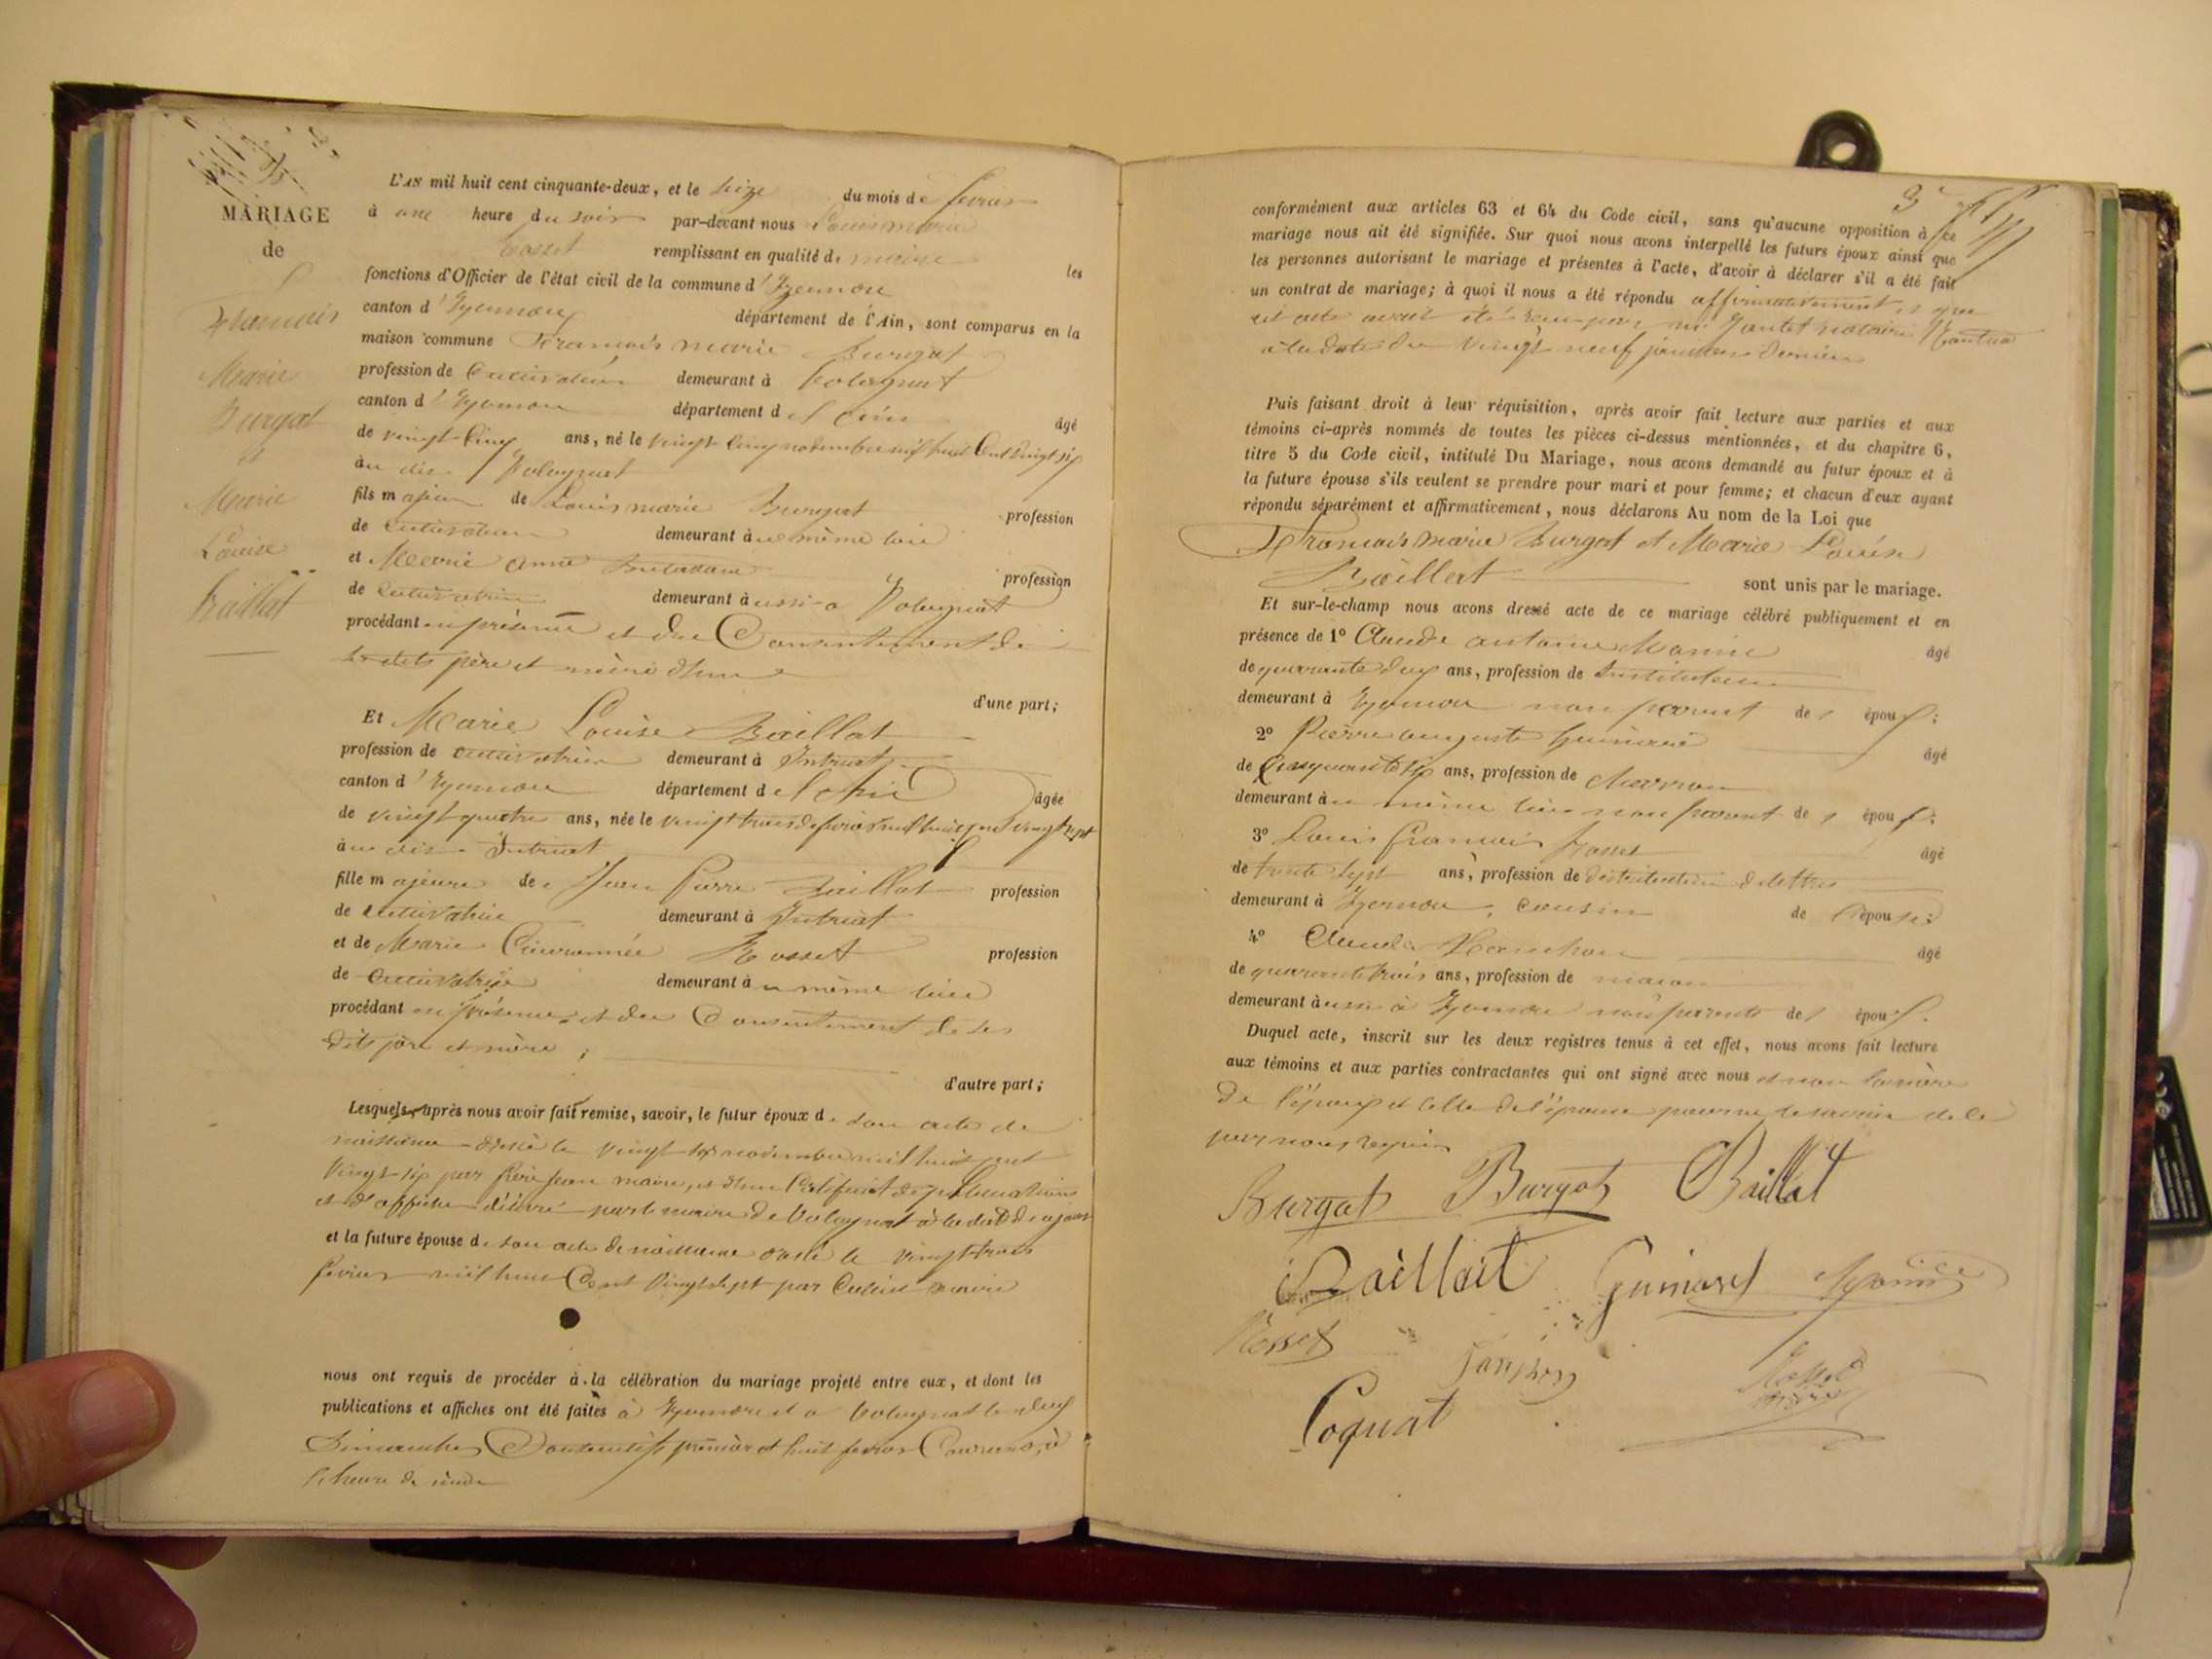 MARIAGE
de
François
Marie
Burgat
et
Marie
Louise
Baillat
L'AN mil huit cent cinquante-deux, et le seize du mois de février
à une heure du soir par-devant nous Louis marie
Rosset remplissant en qualité de maire les
fonctions d'Officier de l'état civil de la commune d'Izernore
canton d'Izernore département de l'Ain, sont comparus en la
maison commune François marie Burgat
profession de Cultivateur demeurant à Volognat
canton d'Izernore département de l'ain âgé
de vingt cinq ans, né le vingt cinq novembre mil huit Cent vingt six
au dit Volognat
fils majeur de Louis marie Burgat profession
de Cultivateur demeurant au même lieu
et Marie anne profession
de Cultivatrice demeurant aussi a Volognat
procédant en présence et du Consentement de
ses dits père et mère d'une
d'une part;
Et Marie Louise Baillat
profession de cultivatrice demeurant à Intriat
canton d'Izernore département de l'Ain âgée
de vingt quatre ans, née le vingt trois de février mil huit cent vingt sept
au dit Intriat
fille majeure de Jean Pierre Baillat profession
de cultivateur demeurant à Intriat
et de Marie Couronnée Rosset profession
de Cultivatrice demeurant au même lieu
procédant en présence et du Consentement de ses
dits père et mère;
d'autre part;
Lesquels, après nous avoir fait remise, savoir, le futur époux de son acte de
naissance dressé le vingt six novembre mil huit cent
vingt-six par maire, et d'un Certificat de publications
et d'affiche délivré par le maire de Volognat à la date de ce jour
et la future épouse de son acte de naissance dressé le vingt-trois
février mil huit Cent vingt sept par maire
nous ont requis de procéder à la célébration du mariage projeté entre eux, et dont les
publications et affiches ont été faites à Izernore et a Volognat les deux
Dimanches Consécutifs premier et huit février Courant, à
l'heure de midi
3
conformément aux articles 63 et 64 du Code civil, sans qu'aucune opposition à ce
mariage nous ait été signifiée. Sur quoi nous avons interpellé les futurs époux ainsi que
les personnes autorisant le mariage et présentes à l'acte, d'avoir à déclarer s'il a été fait
un contrat de mariage; à quoi il nous a été répondu affirmativement et que
cet acte avait été reçu par me Jantet notaire Nantua
à la date du vingt neuf janvier dernier
Puis faisant droit à leur réquisition, après avoir fait lecture aux parties et aux
témoins ci-après nommés de toutes les pièces ci-dessus mentionnées, et du chapitre 6,
titre 5 du Code civil, intitulé Du Mariage, nous avons demandé au futur époux et à
la future épouse s'ils veulent se prendre pour mari et pour femme; et chacun d'eux ayant
répondu séparément et affirmativement, nous déclarons Au nom de la Loi que
François marie Burgat et Marie Louise
Baillat sont unis par le mariage.
Et sur-le-champ nous avons dressé acte de ce mariage célébré publiquement et en
présence de 1º Claude antoine âgé
de quarante deux ans, profession de Instituteur
demeurant à Izernore non parent des époux;
2º Pierre auguste âgé
de Cinquante six ans, profession de charron
demeurant au même lieu non parent des époux;
3º Louis François Rosset âgé
de trente sept ans, profession de distributeur de lettres
demeurant à Izernore, cousin de l'épouse;
4º Claude âgé
de quarante trois ans, profession de maçon
demeurant aussi à Izernore non parent des époux.
Duquel acte, inscrit sur les deux registres tenus à cet effet, nous avons fait lecture
aux témoins et aux parties contractantes qui ont signé avec nous et non la mère
de l'époux et celle de l'épouse pour ne le savoir de ce
par nous requis
Burgat Burgat Baillat
Baillait
Rosset
Coquat
Rosset
maire